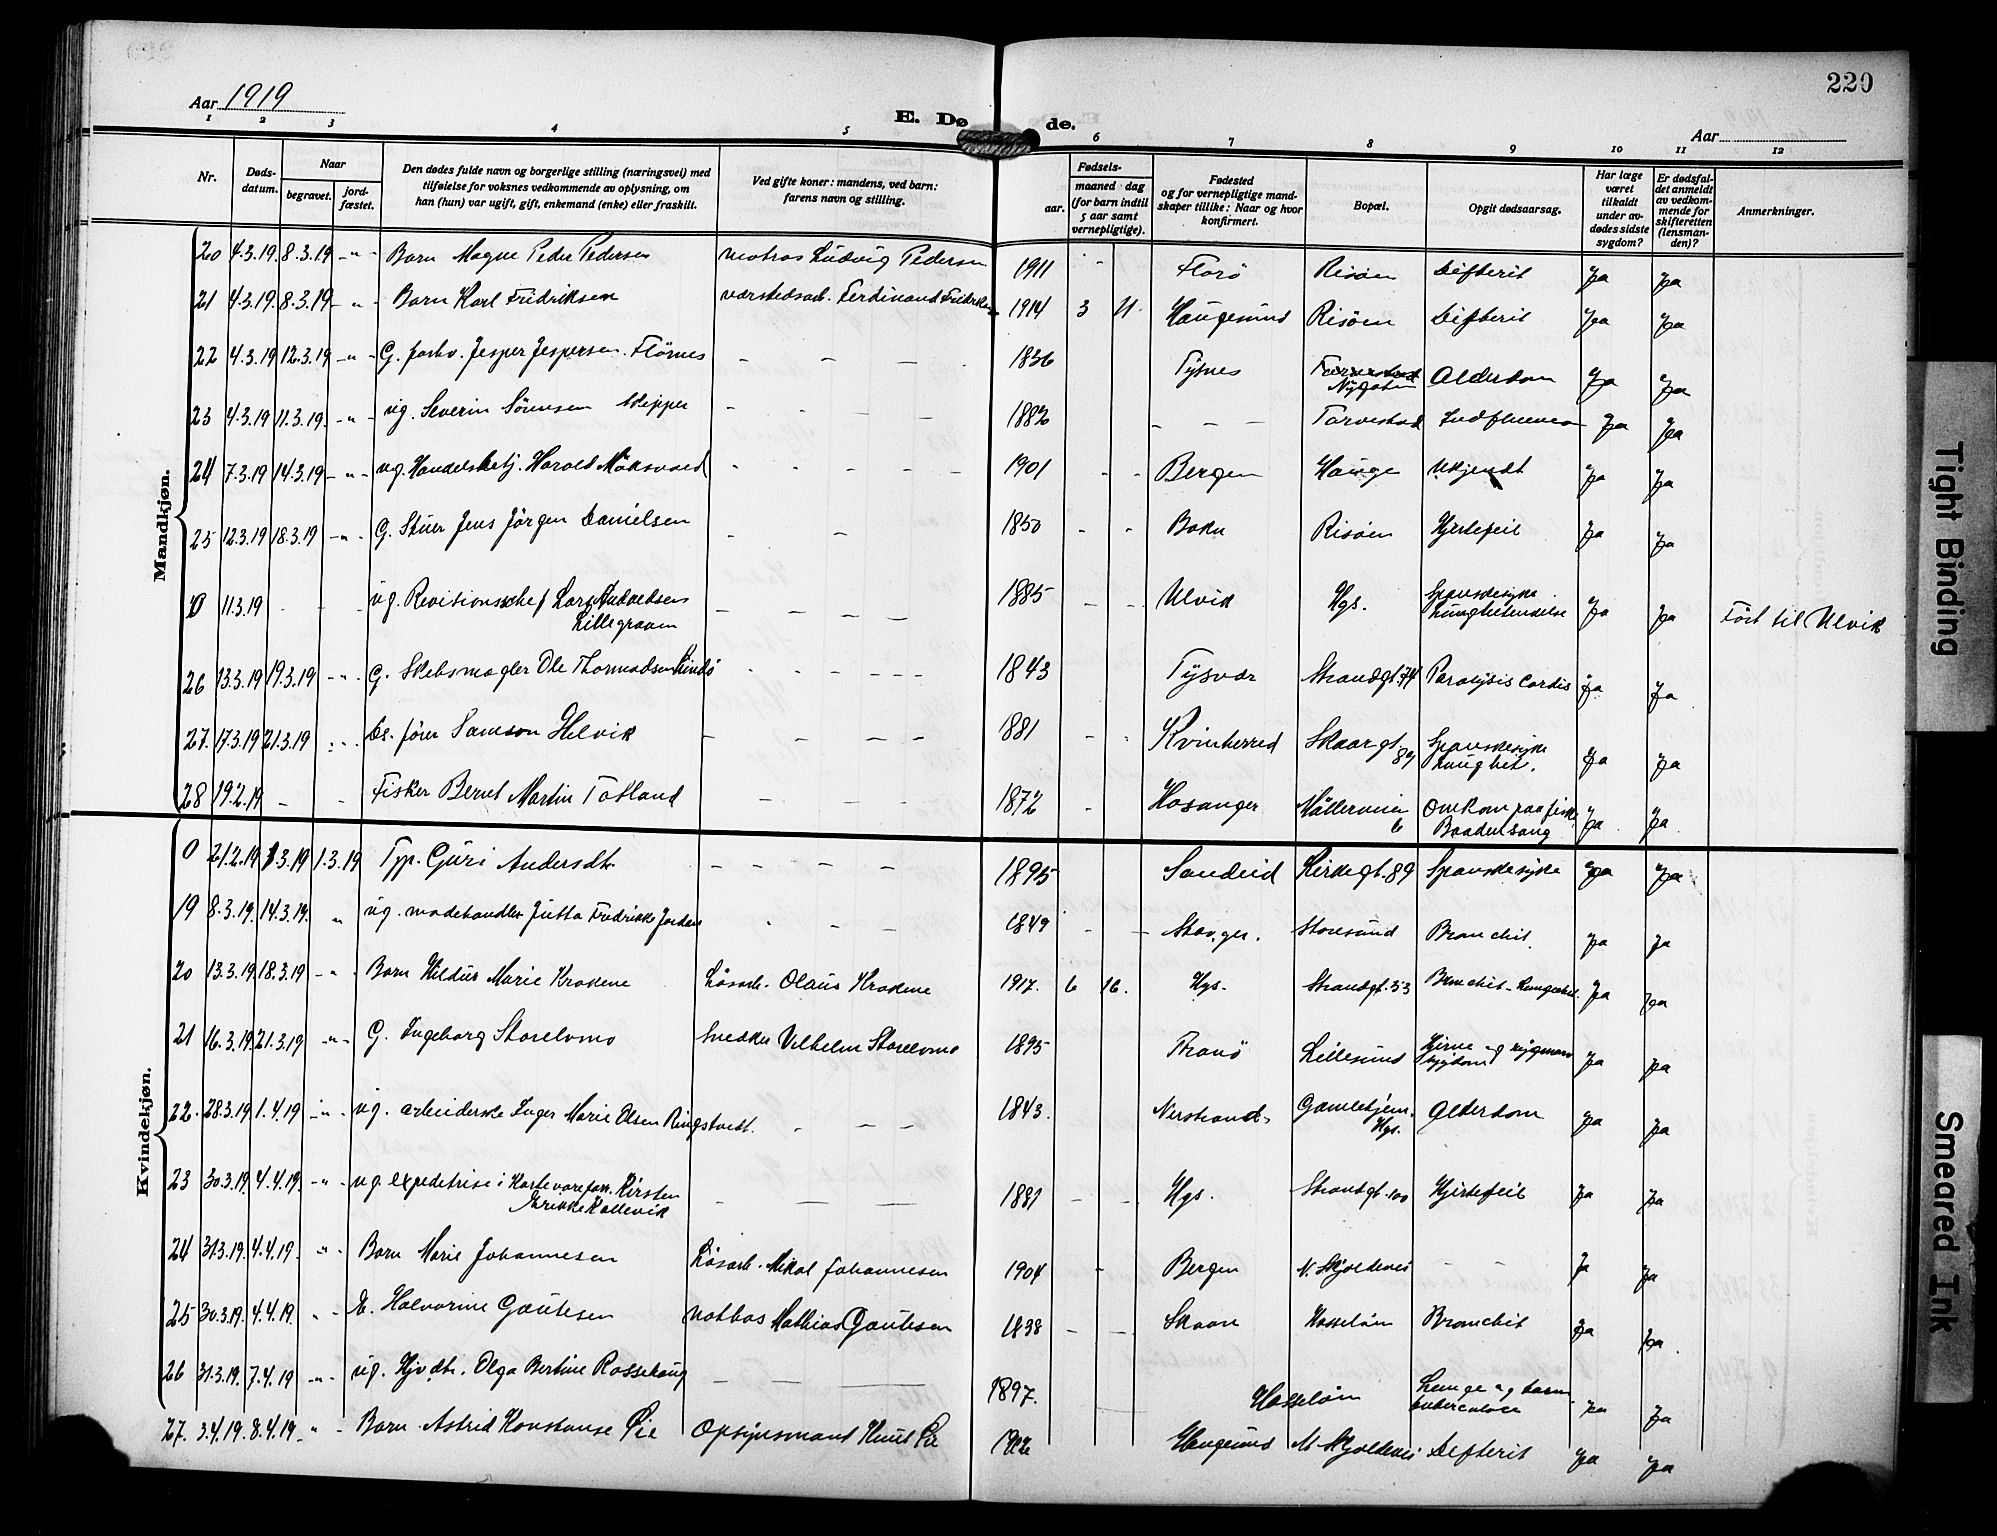 220
Aar 1919
E. Dø de.
Aar
1 2 3 4 5 6 7 8 9 10 11 12
Nr.
Døds-
datum.
Naar
begravet.
jord-
fæstet.
Den dødes fulde navn og borgerlige stilling (næringsvei) med
tilføielse for voksnes vedkommende av oplysning, om
han (hun) var ugift, gift, enkemand (enke) eller fraskilt.
Ved gifte koner: mandens, ved barn:
farens navn og stilling.
Fødsels-
aar.
maaned dag
(for barn indtil
5 aar samt
vernepligtige).
Fødested
og for vernepligtige mand-
skaper tillike: Naar og hvor
konfirmert.
Bopæl.
Opgit dødsaarsag.
Har læge
været
tilkaldt
under av-
dødes sidste
sygdom?
Er dødsfal-
det anmeldt
av vedkom-
mende for
skifteretten
(lensman-
den)?
Anmerkninger.
Mandkjøn.
20 4.3.19 8.3.19 -"- Barn Magne Peder Pedersen matros Ludvig Pedersen 1911 - Florø Risøen Difterit Ja Ja
21 4.3.19 8.3.19 -"- Barn Karl Fridriksen værstedsarb. Ferdinand Fridriksen 1914 3 11 Haugesund Risøen Difterit Ja Ja
22 4.3.19 12.3.19 -"- G. Jesper Jespersen Flørnes - - - 1836 Tysnes Alderdom Ja Ja
23 4.3.19 11.3.19 -"- ug. Severin Sørensen skipper - - - - 1882 - - - Torvestad Indfluenca Ja Ja
24 7.3.19 14.3.19 -"- ug. Handelsbetj. Harald Møksvold - - - - - 1901 - - Bergen Hauge Ukjendt Ja Ja
25 12.3.19 18.3.19 -"- G. Stuer Jens Jørgen Danielsen - - 1850 - - Bokn Risøen Hjertefeil Ja Ja
0 11.3.19 - - - ug. Revisionschef Lars
Lillegraven - - - - 1885 - - Ulvik Hgs. Spanskesyke
Lungebetendelse Ja Ja Ført til Ulvik
26 13.3.19 19.3.19 -"- G. Skibsmægler Ole Thormodsen - - - - - 1843 Tysvær Strandgt. 74 Paralysis Cordis Ja Ja
27. 17.3.19 21.3.19 Ds. fører Samson Helvik - - - - 1881 - - Kvinherred Skaargt.
89 Spanskesyke
Ja Ja
28 19.2.19 - - Fisker Bernt Martin Totland - - - - 1872 - Hosanger Møllerveien
6 Omkom paa fiske
Baaden sang Ja Ja
Kvindekjøn.
0 21.2.19 1.3.19 1.3.19 Typ. Guri Andersdt. - - - - 1895 Sandeid Kirkegt. 89 Spanskesyke Ja Ja
19 8.3.19 14.3.19. " ug. modehandler Jutta Fredrikke - - - - 1849 - - Stav.ger. Storesund Bronchit. Ja Ja
20 13.3.19 18.3.19 -"- Barn Hildur Marie Krakene Løsarb. Olaus Krakene 1917. 6 16. Hgs. Strandgt. 53 Ja Ja
21 16.3.19 21.3.19 -"- G. Ingeborg Storelvmo Snedker Vilhelm Storelvmo 1895 Tranø Lillesund Hjerne og rygmarv
sygdom Ja Ja
22. 28.3.19 1.4.19 -"- ug. arbeiderske Inger Marie Olsen Ringstvedt. - - - 1843. Nerstrand. Gamlehjem.
Hgs. Alderdom Ja Ja
23 30.3.19. 4.4.19. -"- ug. expeditrise i Kortevareforr. Kirsten
Rallevik - - - 1881 - - Hgs. Strandgt. 100 Hjertefeil Ja Ja
24 31.3.19. 4.4.19. "- Barn Marie Johannesen Løsarb. Mikal Johannesen 1904 - Bergen N. Skjoldevei - - Ja Ja
25 30.3.19. 4.4.19. "- E. Halvorine Gautesen Mathias Gautesen 1838 - - Skaare Hasseløen Bronchit Ja Ja.
26 31.3.19. 7.4.19 -"- ug. Hjv.dt. Olga Bertine Rossehaug - - - 1897. Hasseløen Lunge og tarm
tuberculose Ja Ja
27. 3.4.19. 8.4.19 "- Barn Astrid Konstanse Lie Opsynsmand Knut Lie Haugesund N. Skjoldevei Difterit Ja Ja
Tight Binding
Smeared Ink